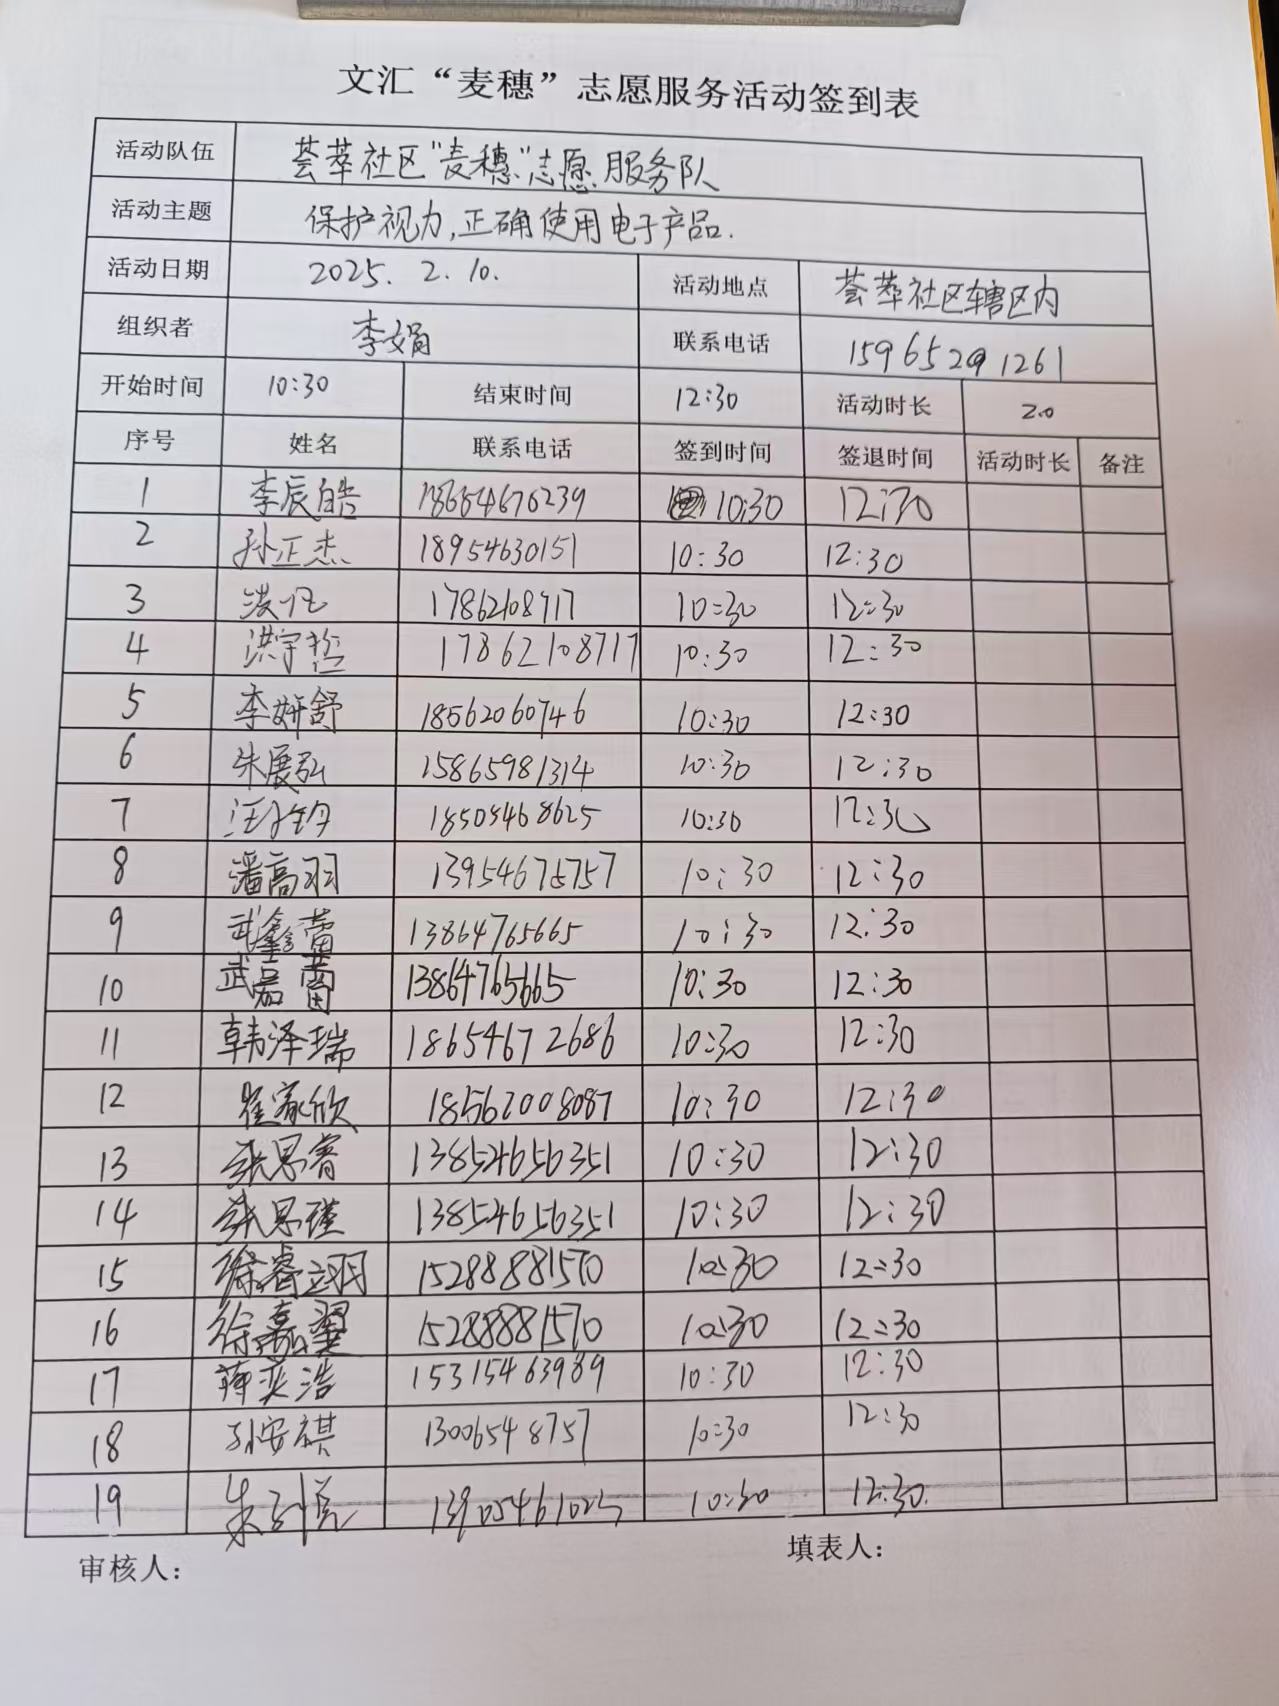 文汇“麦穗”志愿服务活动签到表
活动队伍 荟萃社区“麦穗”志愿服务队
活动主题 保护视力,正确使用电子产品.
活动日期 2025. 2. 10. 活动地点 荟萃社区辖区内
组织者 李娟 联系电话 15965291261
开始时间 10:30 结束时间 12:30 活动时长 2.0
序号 姓名 联系电话 签到时间 签退时间 活动时长 备注
1 李辰皓 18654676239 10:30 12:30
2 孙正杰 18954630151 10:30 12:30
3 洪亿 10:30 12:30
4 洪宇哲 17862108717 10:30 12:30
5 李妍舒 18562060746 10:30 12:30
6 朱展弘 15865981314 10:30 12:30
7 18505468625 10:30 12:30
8 潘高羽 10:30 12:30
9 武鑫蕾 13864765665 10:30 12:30
10 武茗蕾 13864765665 10:30 12:30
11 韩泽瑞 18654672686 10:30 12:30
12 崔家欣 18562008087 10:30 12:30
13 张思睿 13854656351 10:30 12:30
14 张思瑾 13854656351 10:30 12:30
15 徐睿翊 15288881570 10:30 12:30
16 徐嘉翼 15288881570 10:30 12:30
17 薛奕浩 15315463989 10:30 12:30
18 孙安祺 13006548757 10:30 12:30
19 10:30 12:30.
审核人: 填表人: